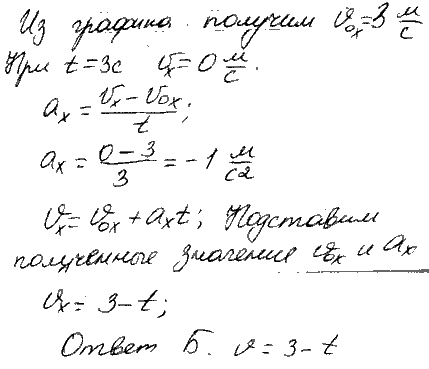 Из графика получим υ₀ₓ = 3 м/с
При t = 3с υₓ = 0 м/с.
aₓ = (υₓ – υ₀ₓ)/t;
aₓ = (0 – 3)/3 = –1 м/с2
υₓ = υ₀ₓ + aₓt; Подставим
полученные значение υ₀ₓ и aₓ
υₓ = 3 – t;
Ответ Б. υ = 3 – t